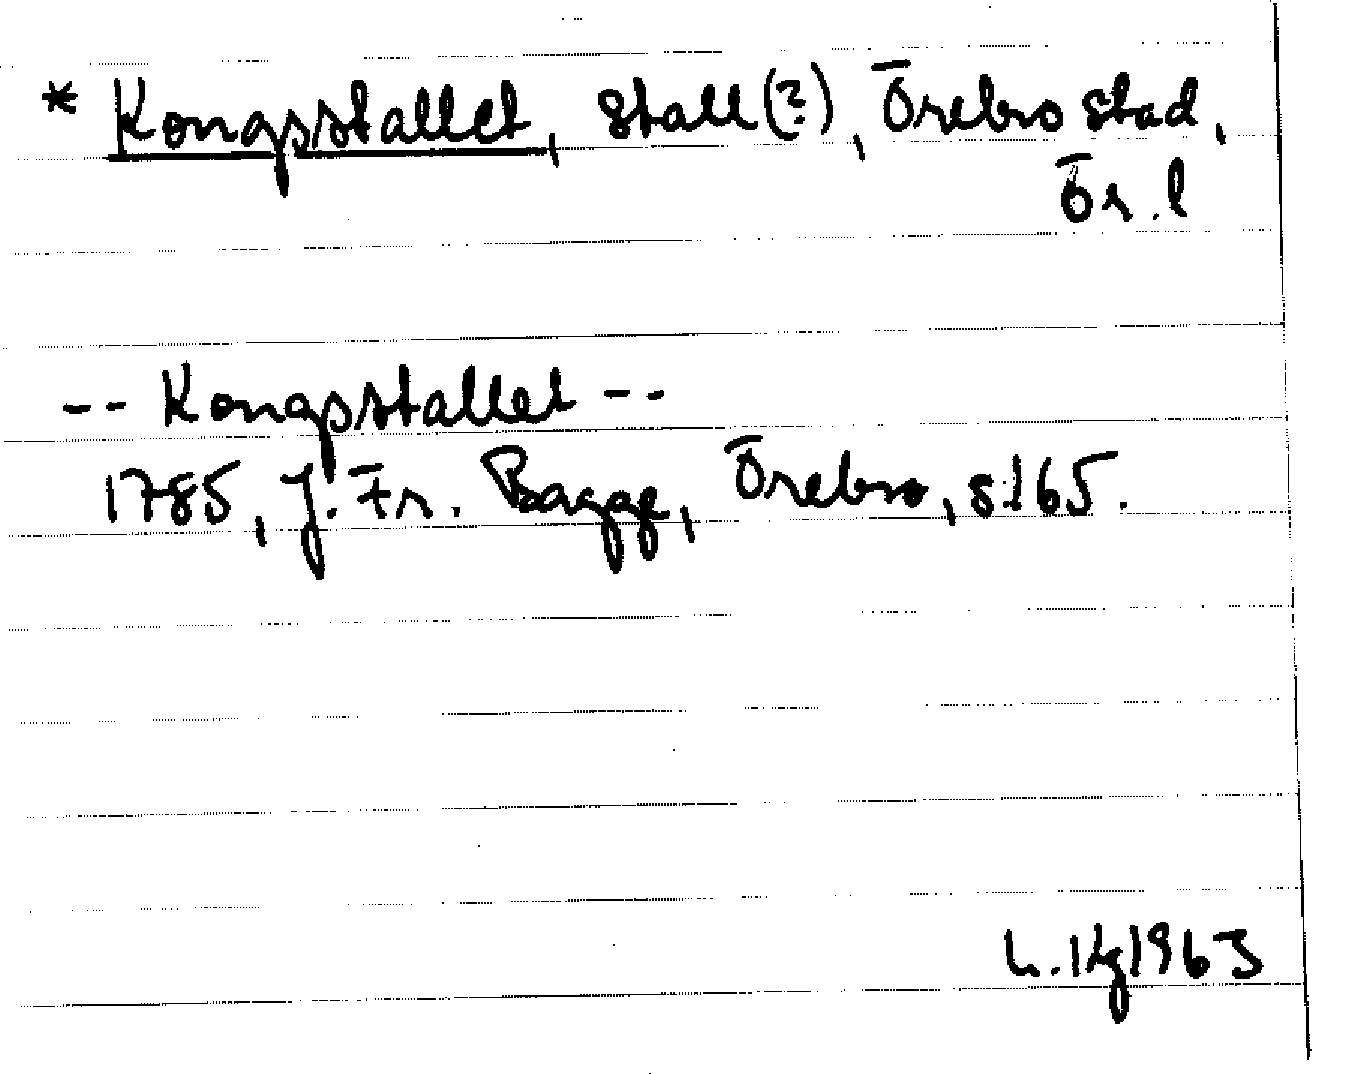 * Kongsstallet, stall(?), Örebro stad,
Ör. l
-- Kongsstallet --
1785, J. Fr. Bagge, Örebro, s 165.
1963